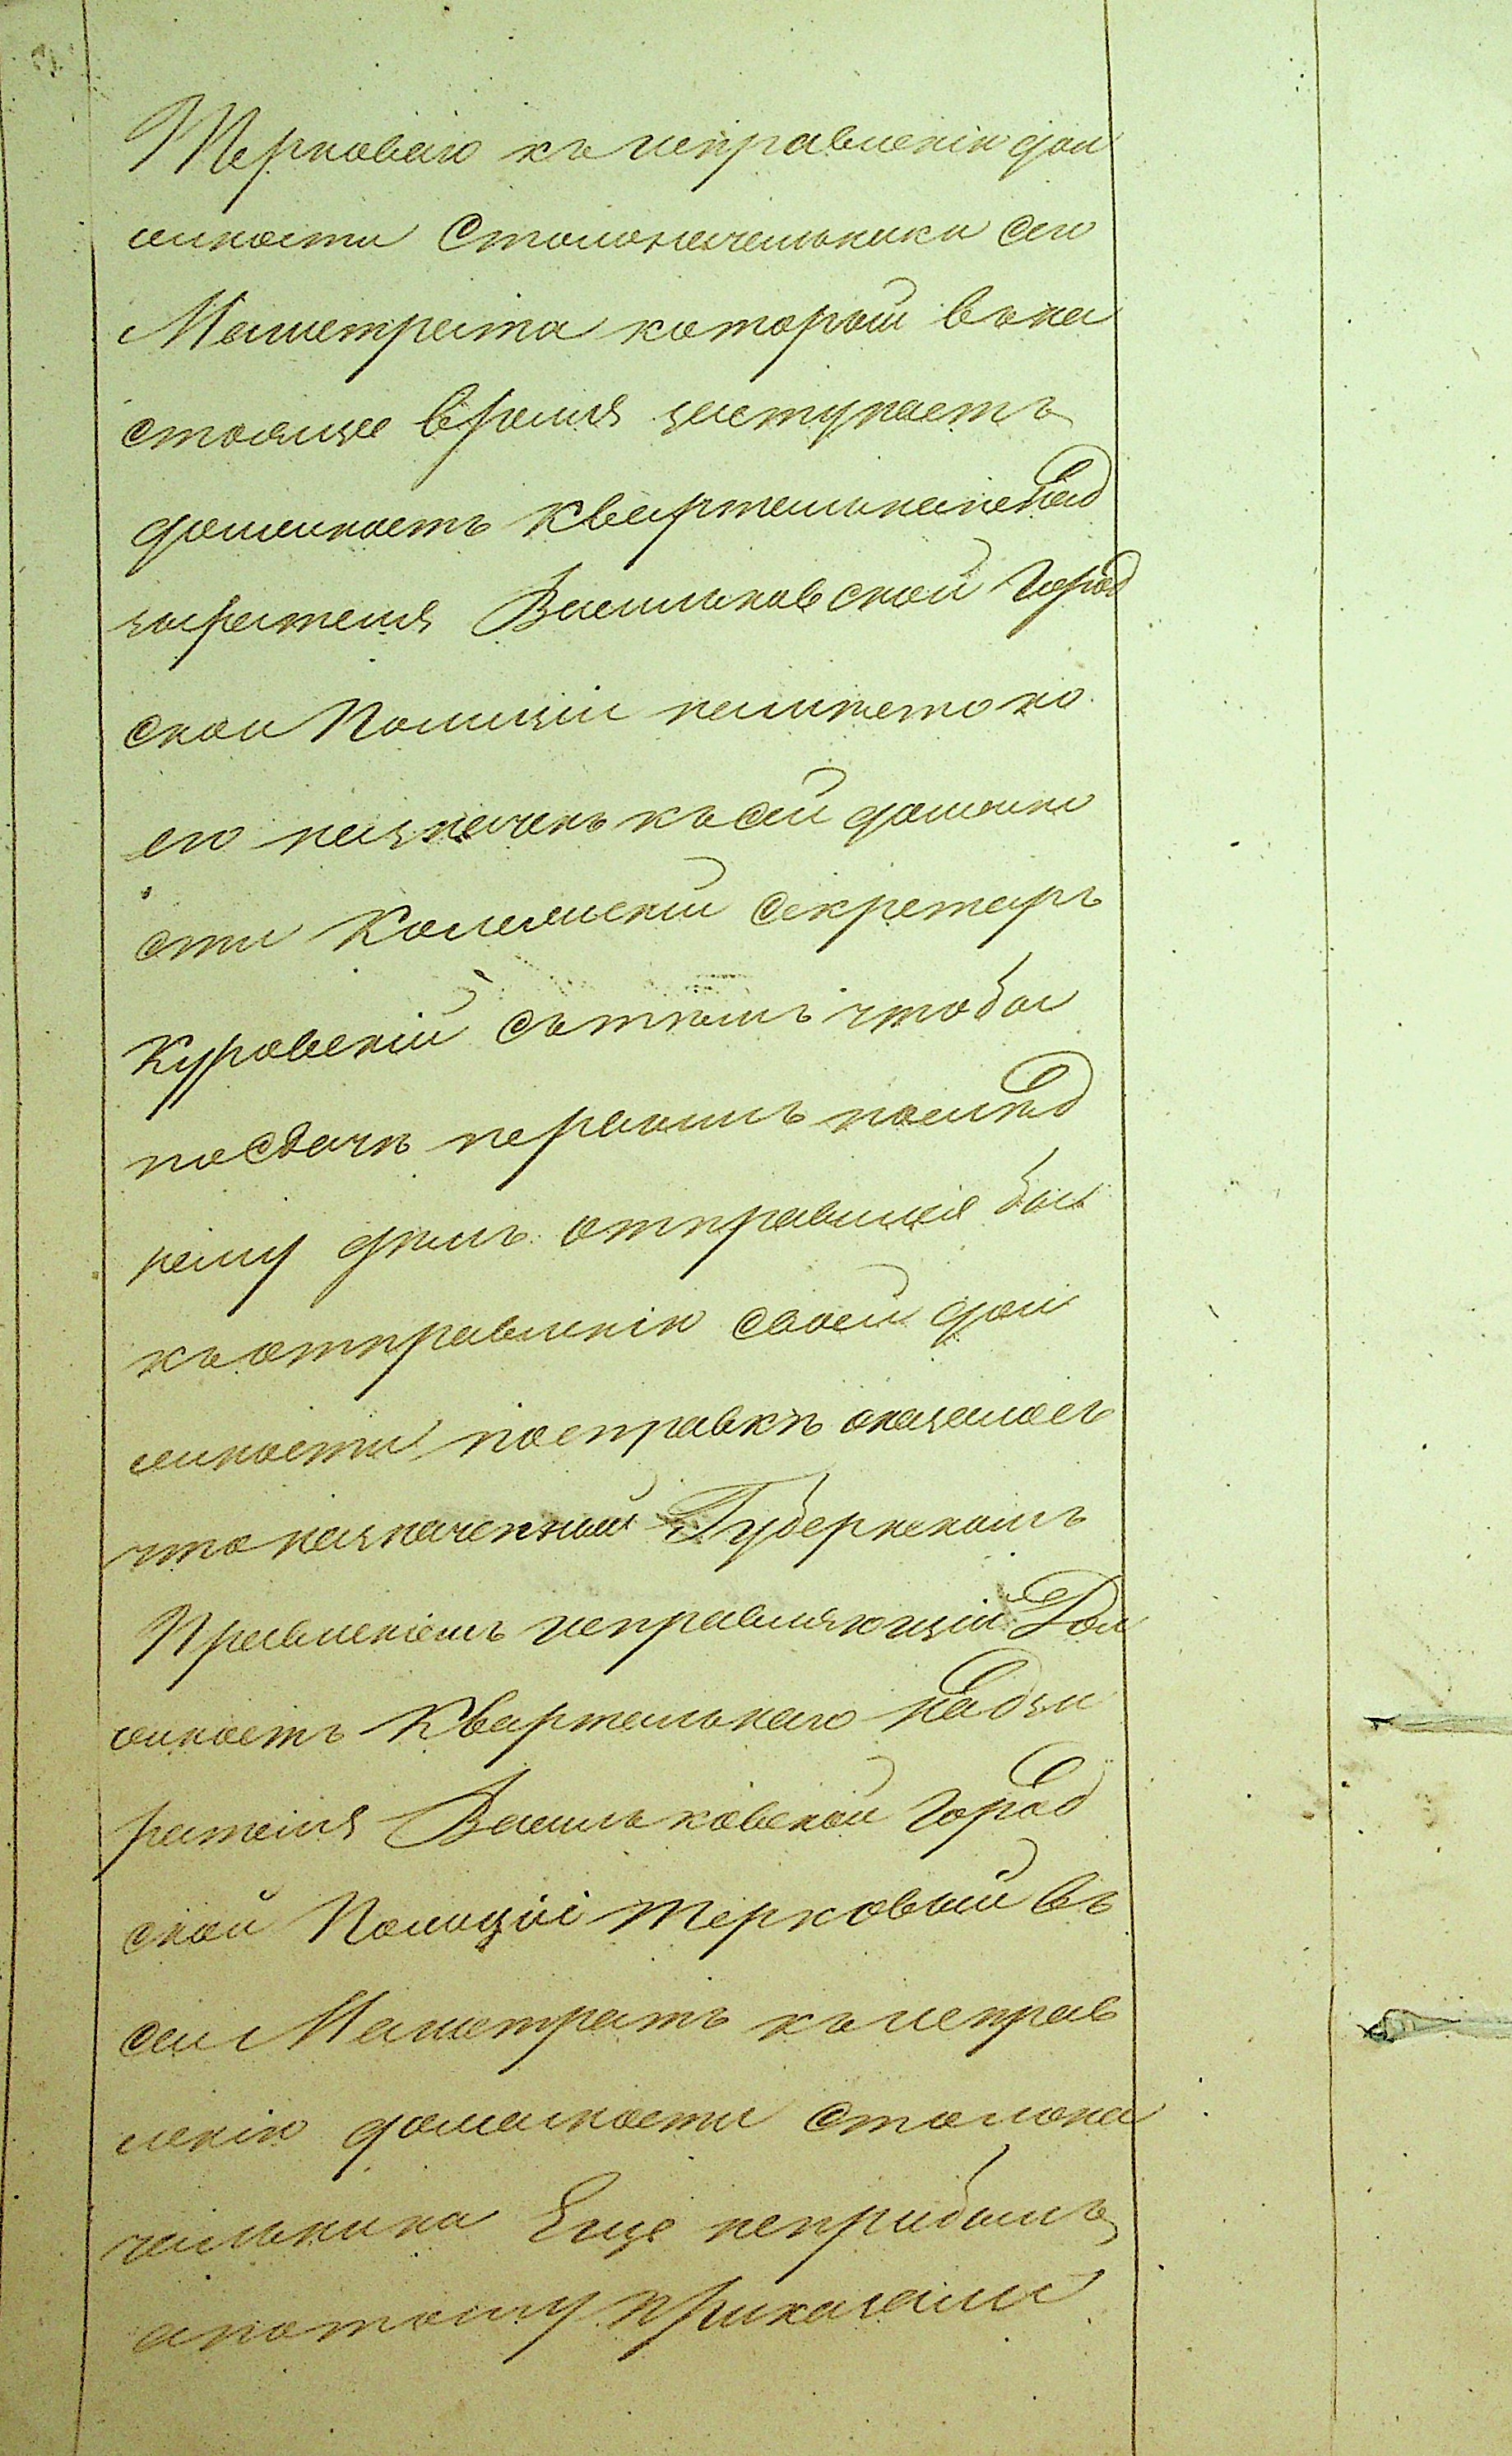 Терноваго къ исправленію дол
жности Столоначальника сего
Магистрата которой въ на
стоящее время заступаетъ
должность Квартальнаго над
зирателя Васильковской Город
ской Полиціи на мѣсто ко
его назначенъ къ сей должно
сти Колежскій Секретарь
Куровскій съ тѣмъ чтобы
по сдачи первымъ послѣд
нему дѣлъ отправился бы
къ отправленію своей дол
жности, по справкѣ оказалось
что назначенный Губернскимъ
Правленіемъ исправляющій Дол
жность Квартальнаго надзи
рателя Васильковской Город
ской Полиціи Терновый въ
сей Магистратъ къ исправ
ленію должности столона
чальника Еще неприбылъ,
а потому Приказали